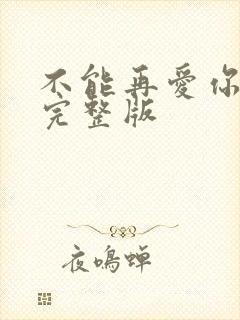 不能再愛你
完整版
夜鳴蟬